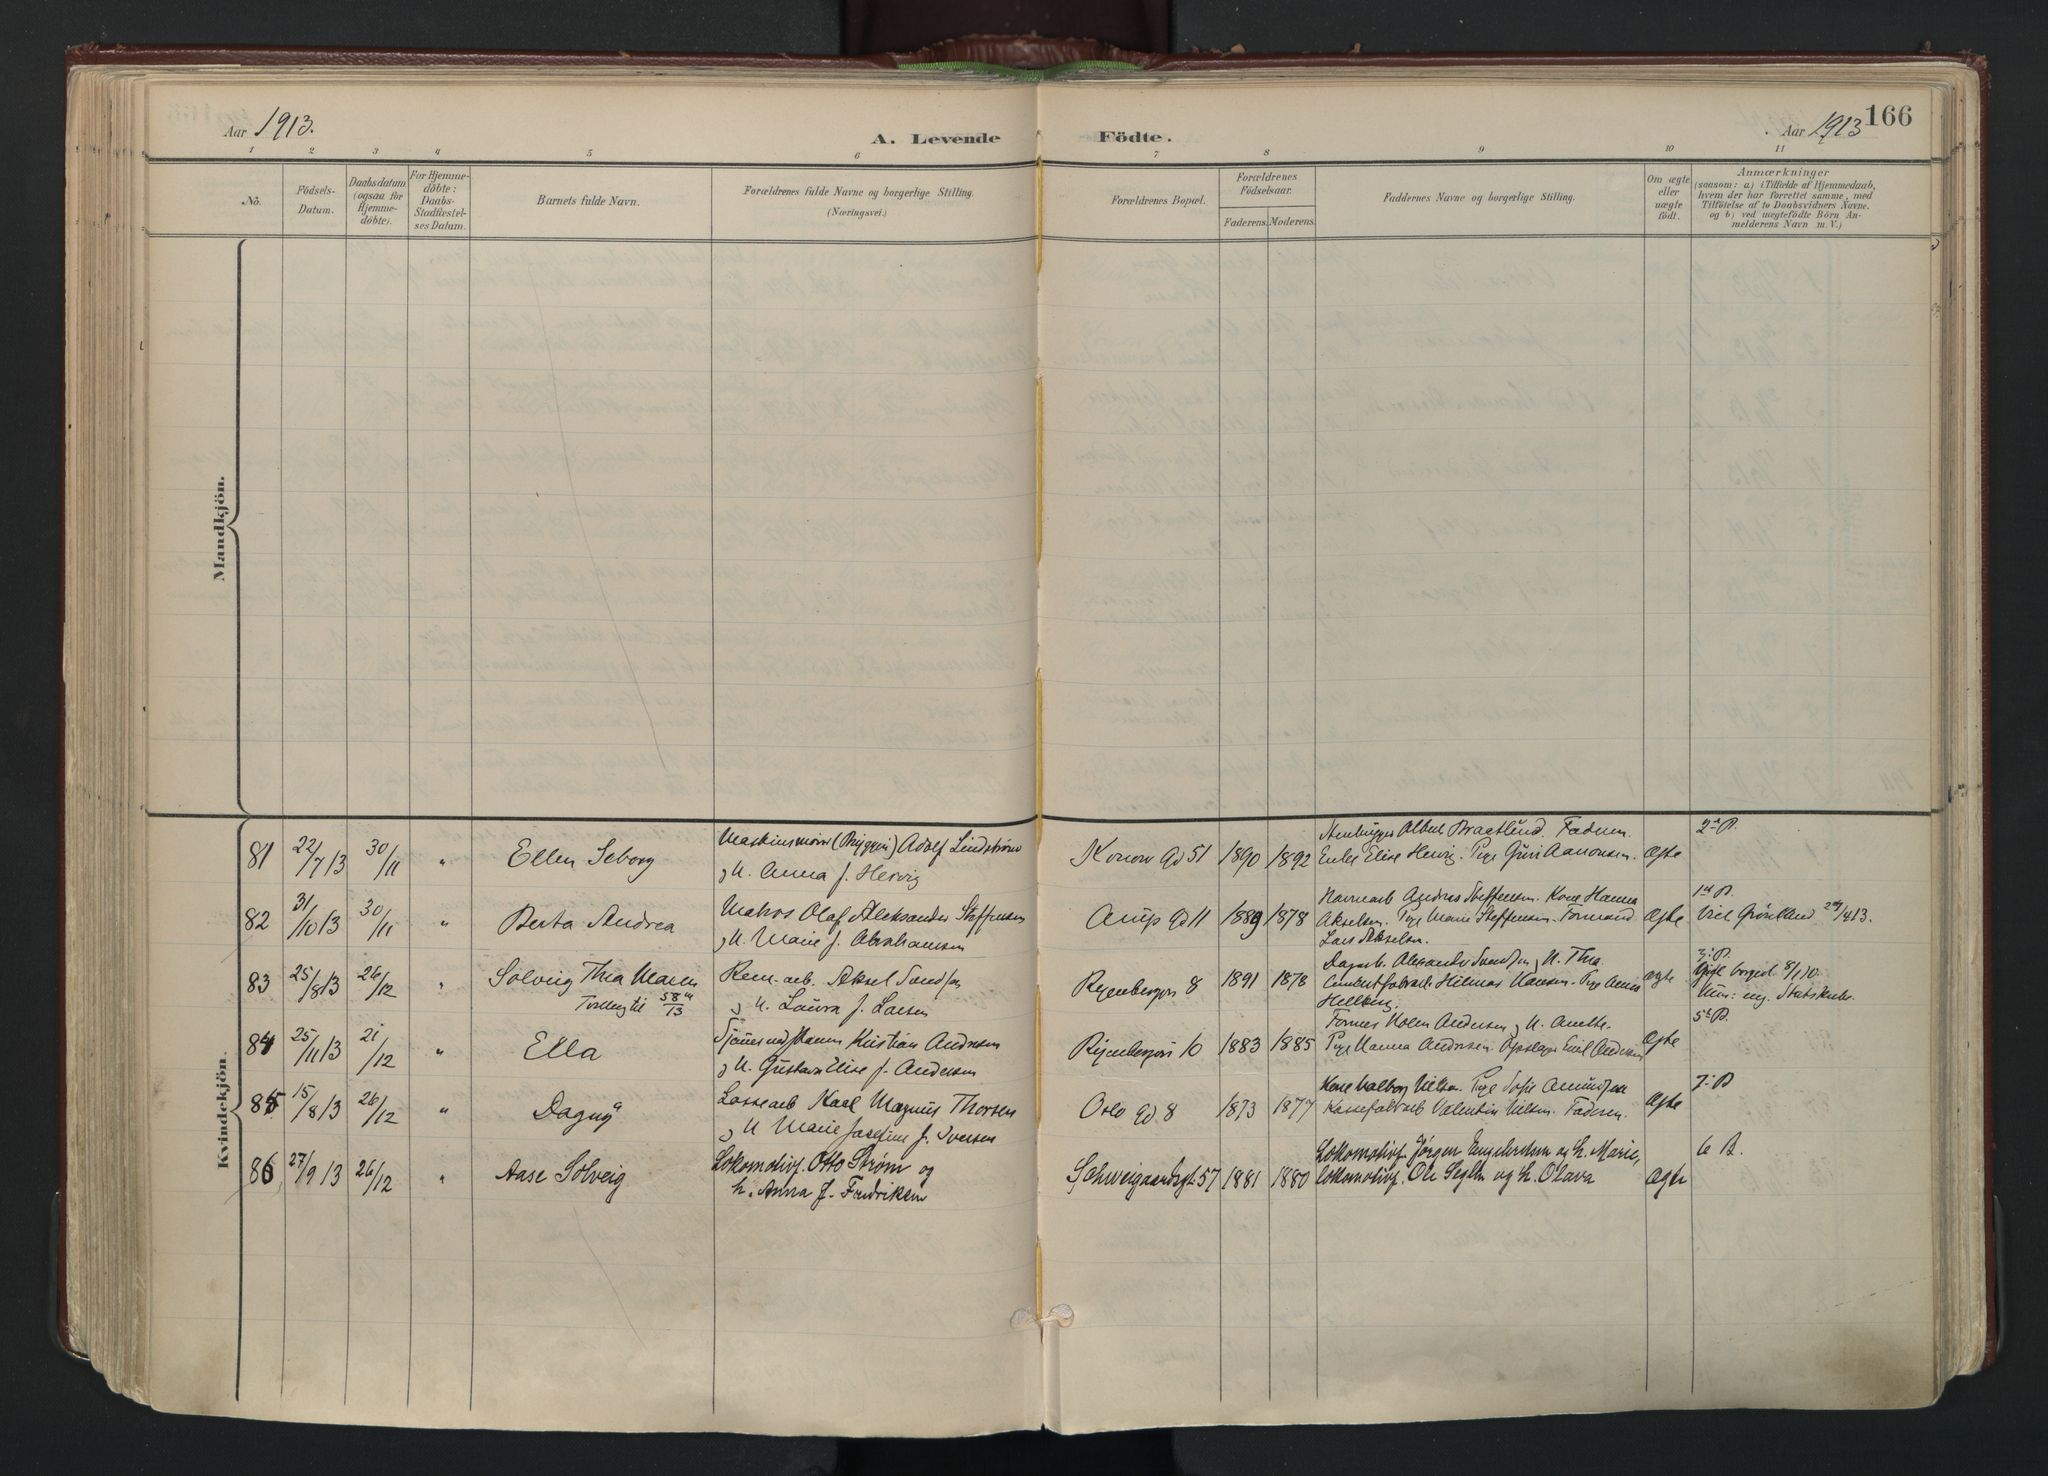 Aar 1913.
A. Levende Födte.
Aar 1913
166
1 2 3 4 5 6 7 8 9 10 11
No.
Födsels-Datum.
Daabsdatum (ogsaa for Hjemmedöbte).
For Hjemmedöbte: Daabs-Stadfæstelses Datum.
Barnets fulde Navn.
Forældrenes fulde Navne og borgerlige Stilling.
(Næringsvei.)
Forældrenes Bopæl.
Forældrenes Födselsaar.
Faderens. Moderens.
Faddernes Navne og borgerlige Stilling.
Om ægte eller uægte födt.
Anmærkninger
(saasom: a) i Tilfælde af Hjemmedaab,
hvem der har forrettet samme, med
Tilföielse af to Daabsvidners Navne.
og b) ved uægtefödte Börn An-
melderens Navn m. V.)
Mandkjön.
Kvindekjön.
81 22/7 13 30/11 " Ellen Seborg
Adolf Lindström
og H. Anna f. Hervig
Konow Gd 51 1890 1892
Albert Braatlund. Faderen.
Enke Elise Hervig. Pige Guri Aanonsen.
ægte
2. P.
82 31/10 13 30/11 " Berta Andrea
Matros Olaf Aleksander Steffensen
og H. Marie f. Abrahamsen
Arups Gd 11 1889 1878
Havnearb Andreas Steffensen. Kone Hanna
Akselsen. Pige Marie Steffensen. Formand
Lars Akselsen.
ægte
1 P.
Viet Grönland 413.
83 25/8 13 26/12 " Solveig Thea Maren
Tvilling til 58 a/13
Ren.-arb. Aksel
og H. Laura f. Larsen
Ryenbergvn 8 1891 1878
Dagarb. Alexander og H. Thea.
Hilmar Hansen. Pige Anna
Hellberg.
ægte
3. P.
Gift borgerl. 8/1 10.
84 25/11 13 21/12 " Ella
Kristian Andersen
og H. Gustava Elise f. Andersen
Ryenbergvn 10 1883 1885
Holm Andersen og H. Anette.
Pige Hanna Andersen. Emil Andersen
ægte
5. P.
85 15/8 13 26/12 " Dagny
Lossearb Karl Magnus Thorsen
og H Marie Josefine f. Iversen
Oslo Gd 8 1873 1877
Kone Valborg Nielsen. Pige Sofie Amundsen
Valentin Nielsen. Faderen.
ægte
7. P
86 27/9 13 26/12 " Aase Solveig
Lokomotivf. Otto Ström og
H. Anna f. Fredriksen
Schweigaardsgt. 57 1881 1880
Lokomotivf. Jörgen Engebretsen og H. Marie,
Lokomotivf. Ole og H. Olava
ægte
6 P.